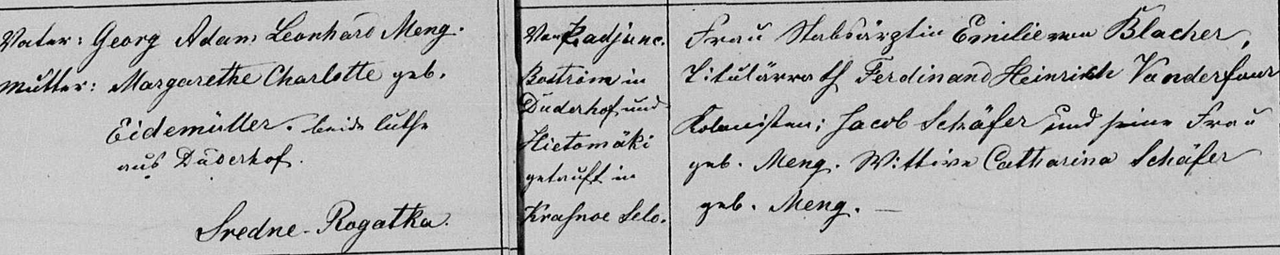 Vater: Georg Adam Leonhard Meng.
Mutter: Margarethe Charlotte geb.
Eidemüller. beide luthr
aus Duderhof.
Sredne-Rogatka.
Von Padjunc.
Bostrim in
Duderhof und
Hietomäki
getauft in
Krasnoe Selo.
Frau Stabsärztin Emilie von Blacher,
Titulärrath Ferdinand Heinrich Vanderfour
Kolonisten: Jacob Schäfer und seine Frau
geb. Meng. Wittwe Catharina Schäfer
geb. Meng. —